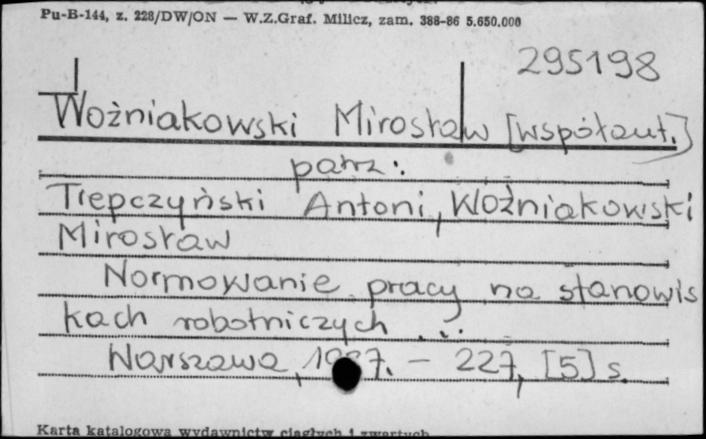 Pu-B-144, z. 228/DW/ON — W.Z.Graf. Milicz, zam. 388-86 5.650.000
295198
Woźniakowski Mirosław [współaut.]
patrz:
Trepczyński Antoni, Woźniakowski
Mirosław
Normowanie pracy na stanowis
kach robotniczych ...
Warszawa, 1987. – 227, [5] s.
Karta katalogowa wydawnictw ciągłych i zwartych